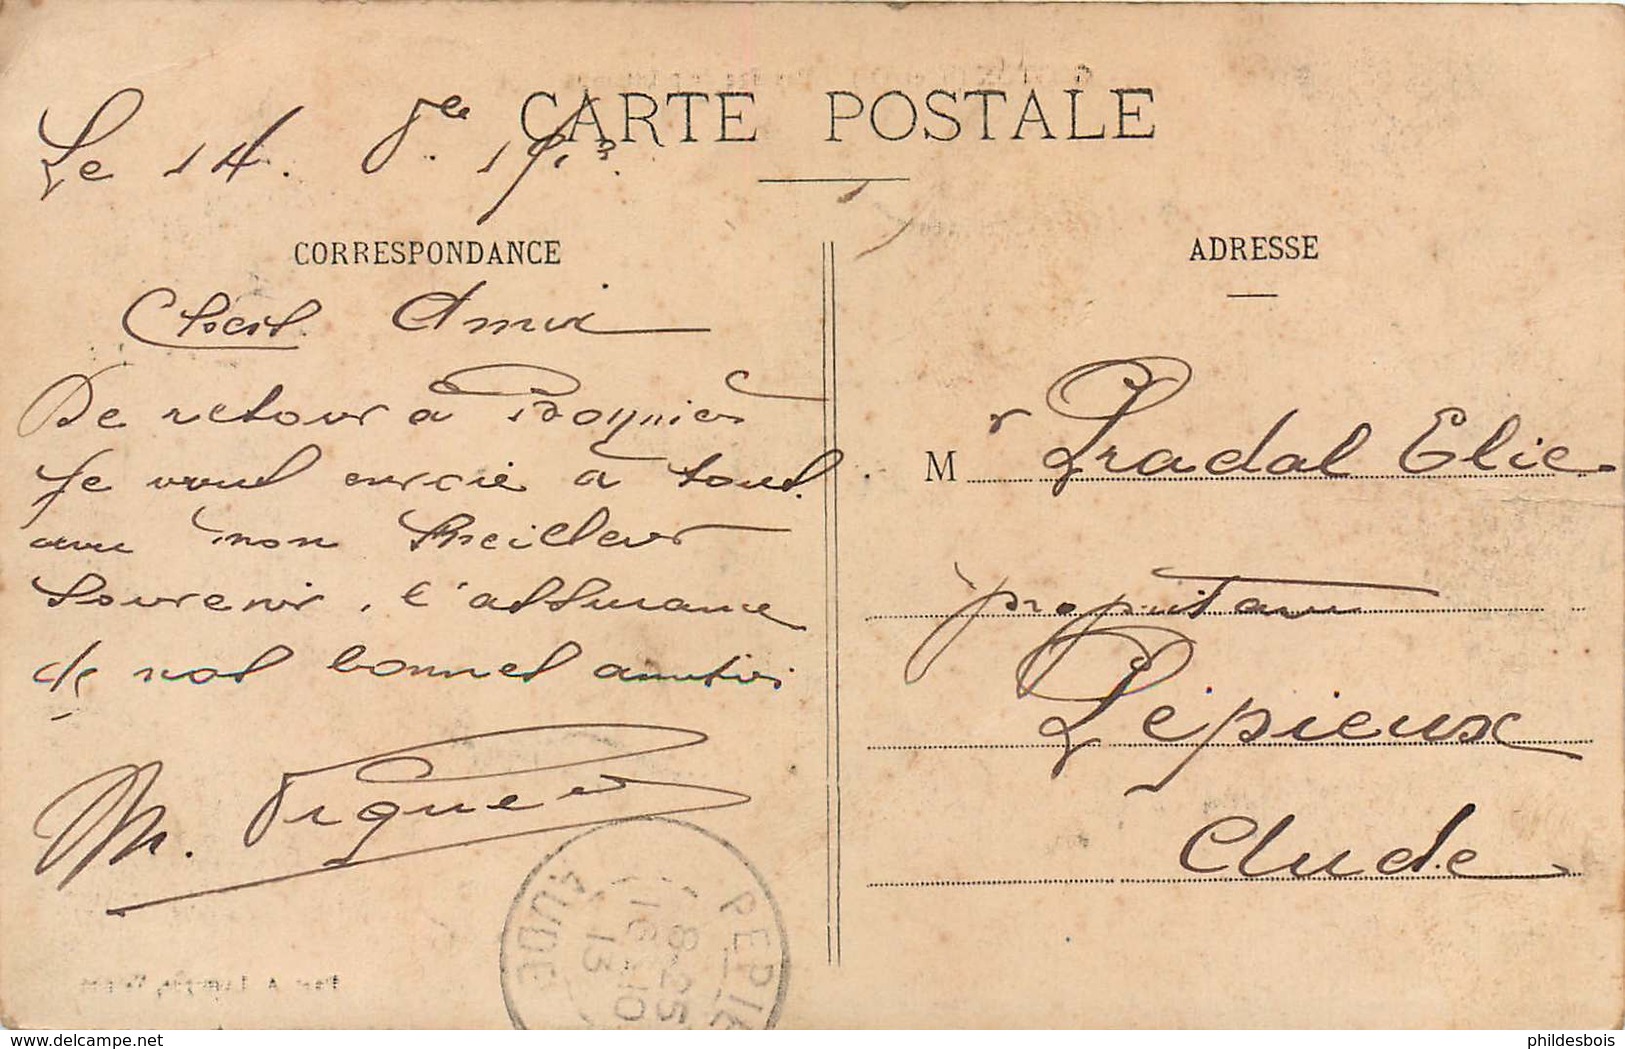 CARTE POSTALE
Le 14. 8re. 1913.
CORRESPONDANCE
Chers Amis
De retour à
Je vous envoie à tous
avec mon meilleur
souvenir, l'assurance
de nos bonnes amitiés
M.
ADRESSE
Mr Pradal Elie
propriétaire
Pépieux
Aude
PEPIE
AUDE
8-25
16-10
13
delcampe.net
phildesbois